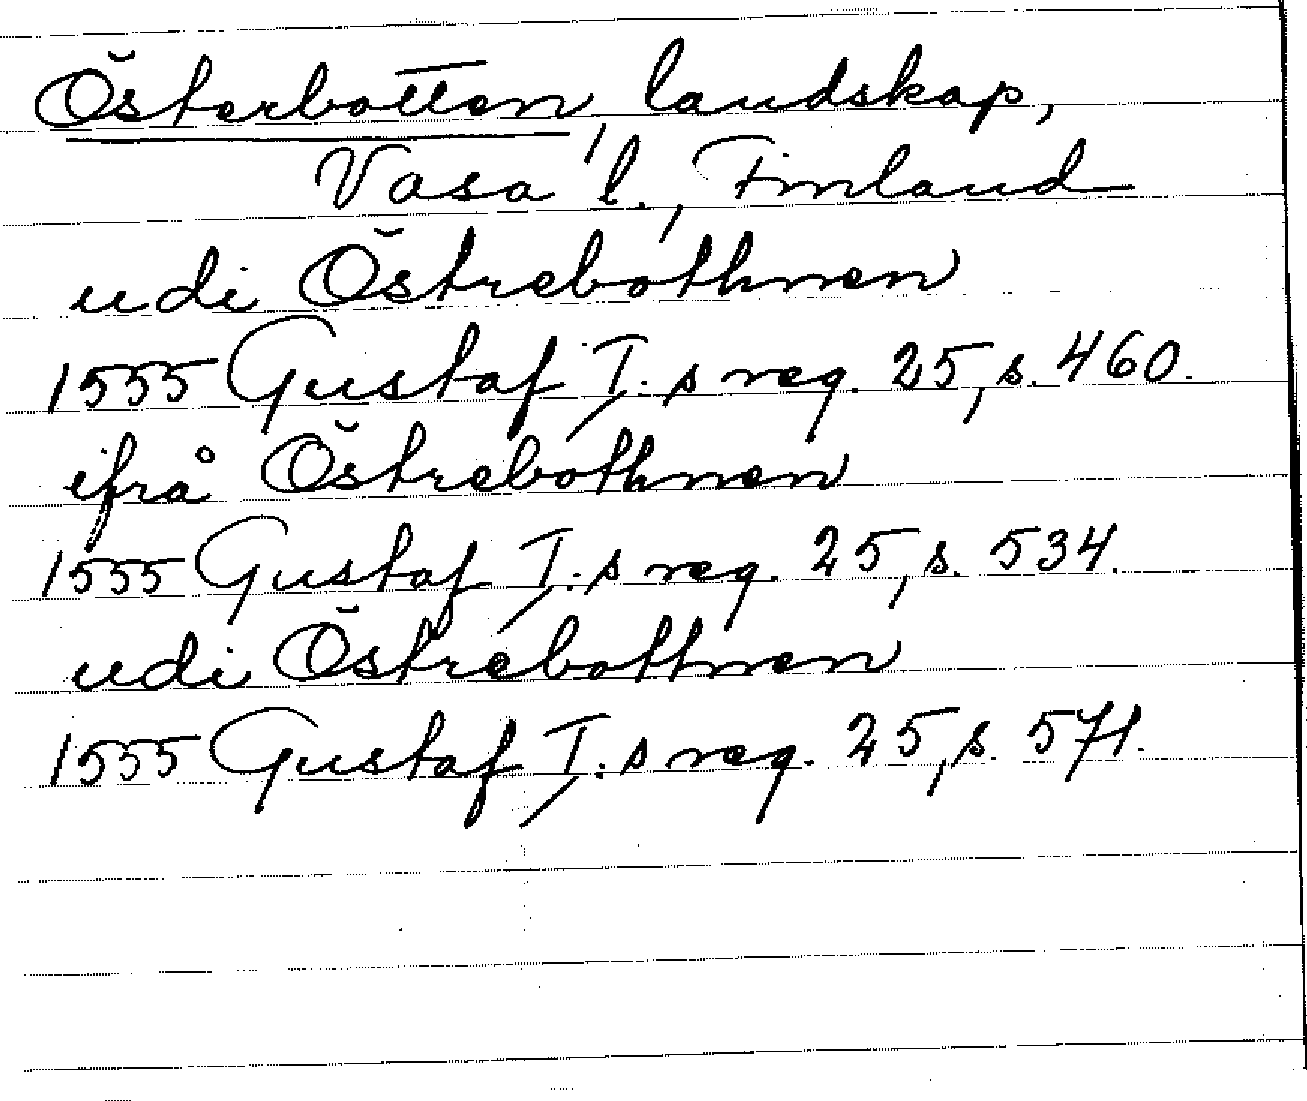 Österbotten, landskap,
Vasa l., Finland
udi Östrebothnen
1555 Gustaf I:s reg. 25, s. 460.
ifrå Östrebothnen
1555 Gustaf I:s reg. 25, s. 534.
udi Östrebothnen
1555 Gustaf I:s reg. 25, s. 571.